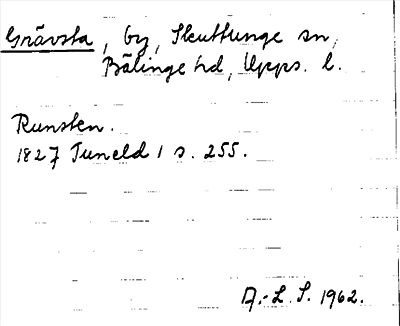 Grävsta, by, Skuttunge sn,
Bälinge hd, Upps. l.
Runsten.
1827 Tuneld 1 s. 255.
A.-L. S. 1962.